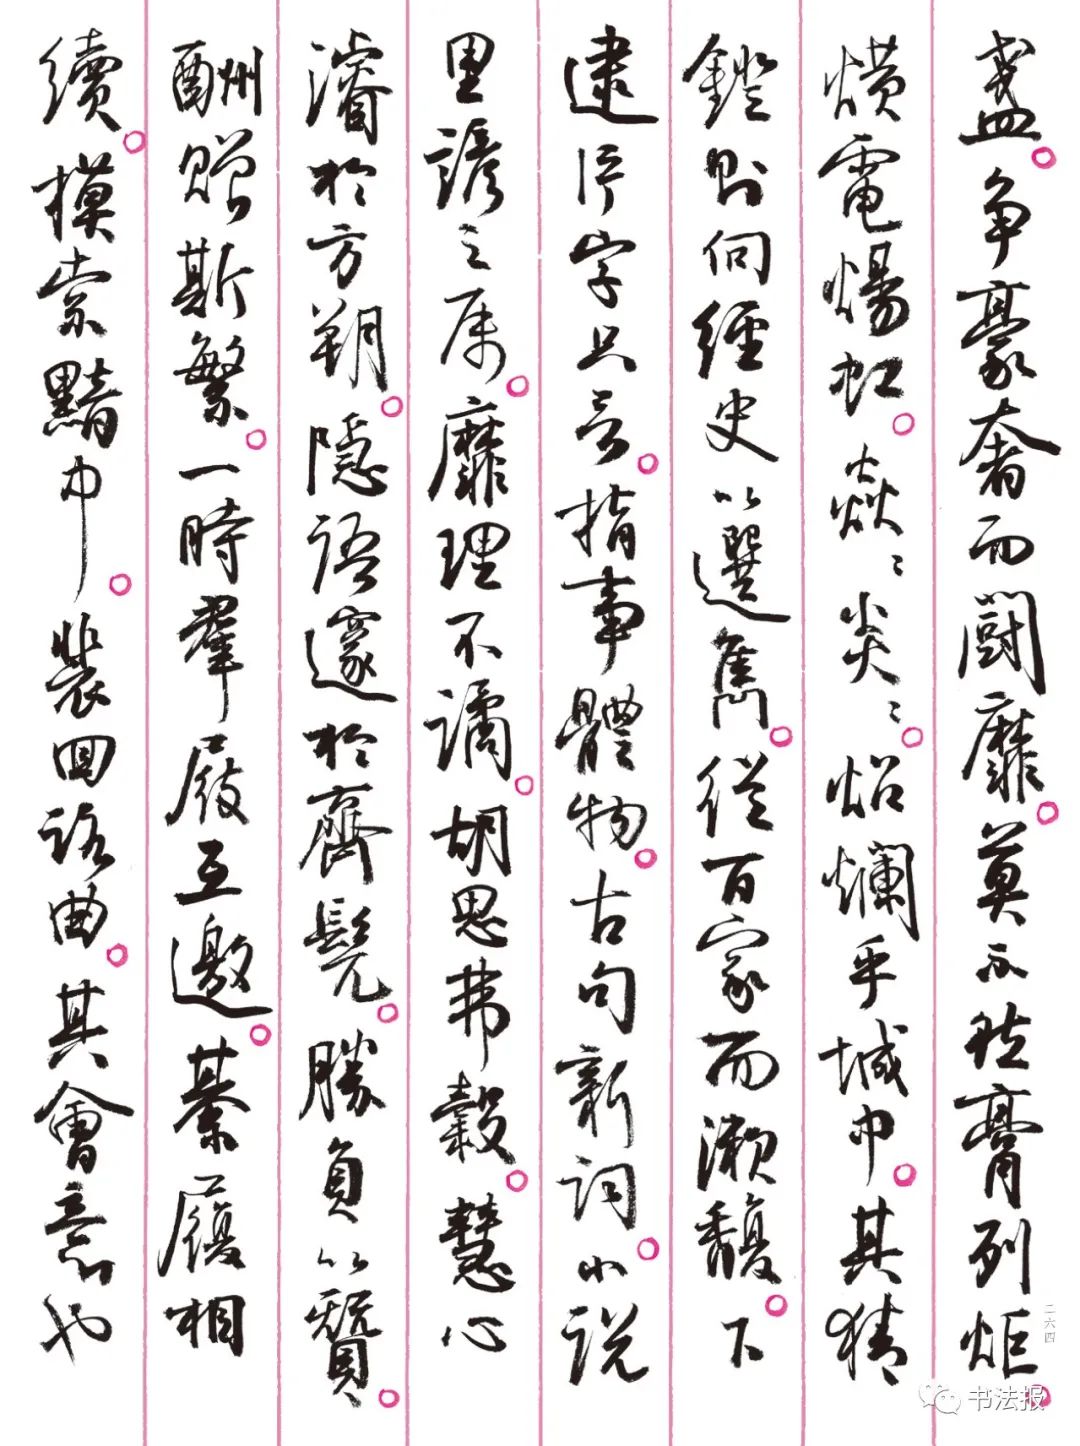 盞。争豪奢而鬭靡。莫不然膏列炬。
熿電煬虹。焱〻炎〻。炤爛乎城中。其猜
鐙則伺經史以選雋。從百家而漱馥。下
逮片字只言。指事體物。古句新詞。小說
里諺之屬。靡理不譎。胡思弗穀。慧心
濬於方朔。隱語邃於齊髡。勝負以贊。
酬贈斯繁。一時群屐互邀。綦履相
續。摸索黯中。裴回路曲。其會意也
二六四
书法报